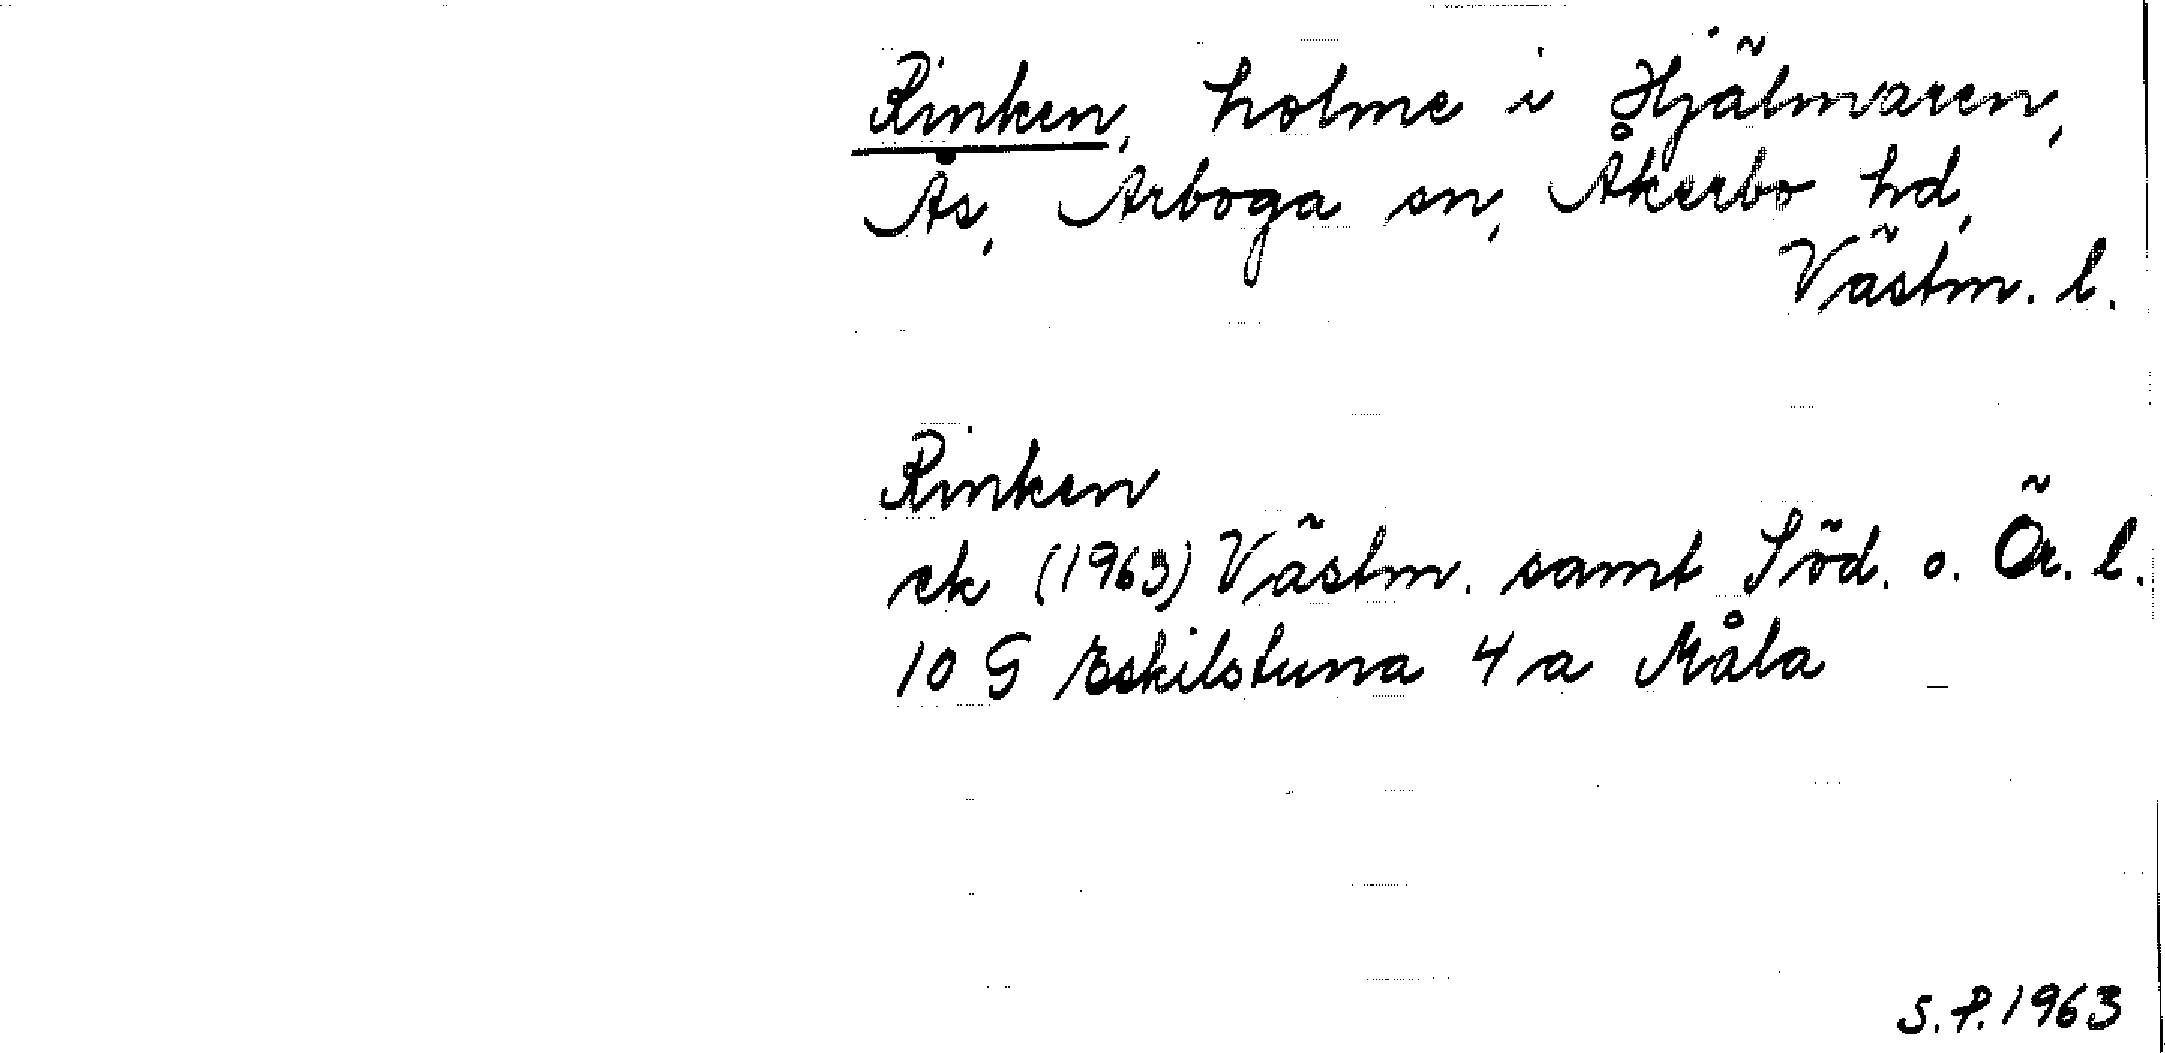 Rinken, holme i Hjälmaren,
Ås, Arboga sn, Åkerbo hd,
Västm. l.
Rinken
ek (1963) Västm. samt Söd. o. Ör. l.
10 G Eskilstuna 4 a Måla
S.P. 1963